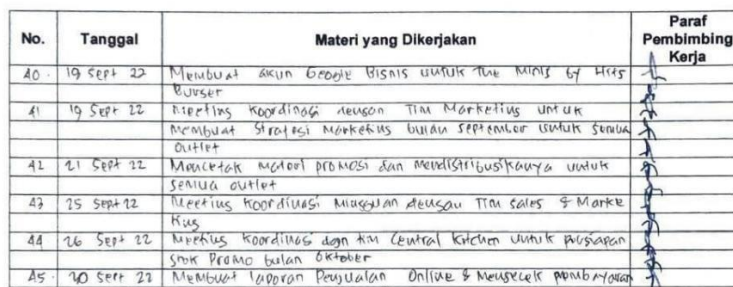 No. Tanggal Materi yang Dikerjakan Paraf Pembimbing Kerja
40. 19 Sept 22 Membuat akun Google Bisnis untuk The Minis by Hits
Burger
41 19 Sept 22 Meeting Koordinasi dengan Tim Marketing untuk
membuat Strategi Marketing bulan September untuk semua
outlet
42 21 Sept 22 Mencetak materi promosi dan mendistribusikannya untuk
semua outlet
43 25 Sept 22 Meeting Koordinasi Mingguan dengan Tim Sales & Marke
ting
44 26 Sept 22 Meeting Koordinasi dgn tim Central Kitchen untuk persiapan
Stok Promo bulan Oktober
45. 30 Sept 22 Membuat laporan Penjualan Online & Mengecek pembayaran